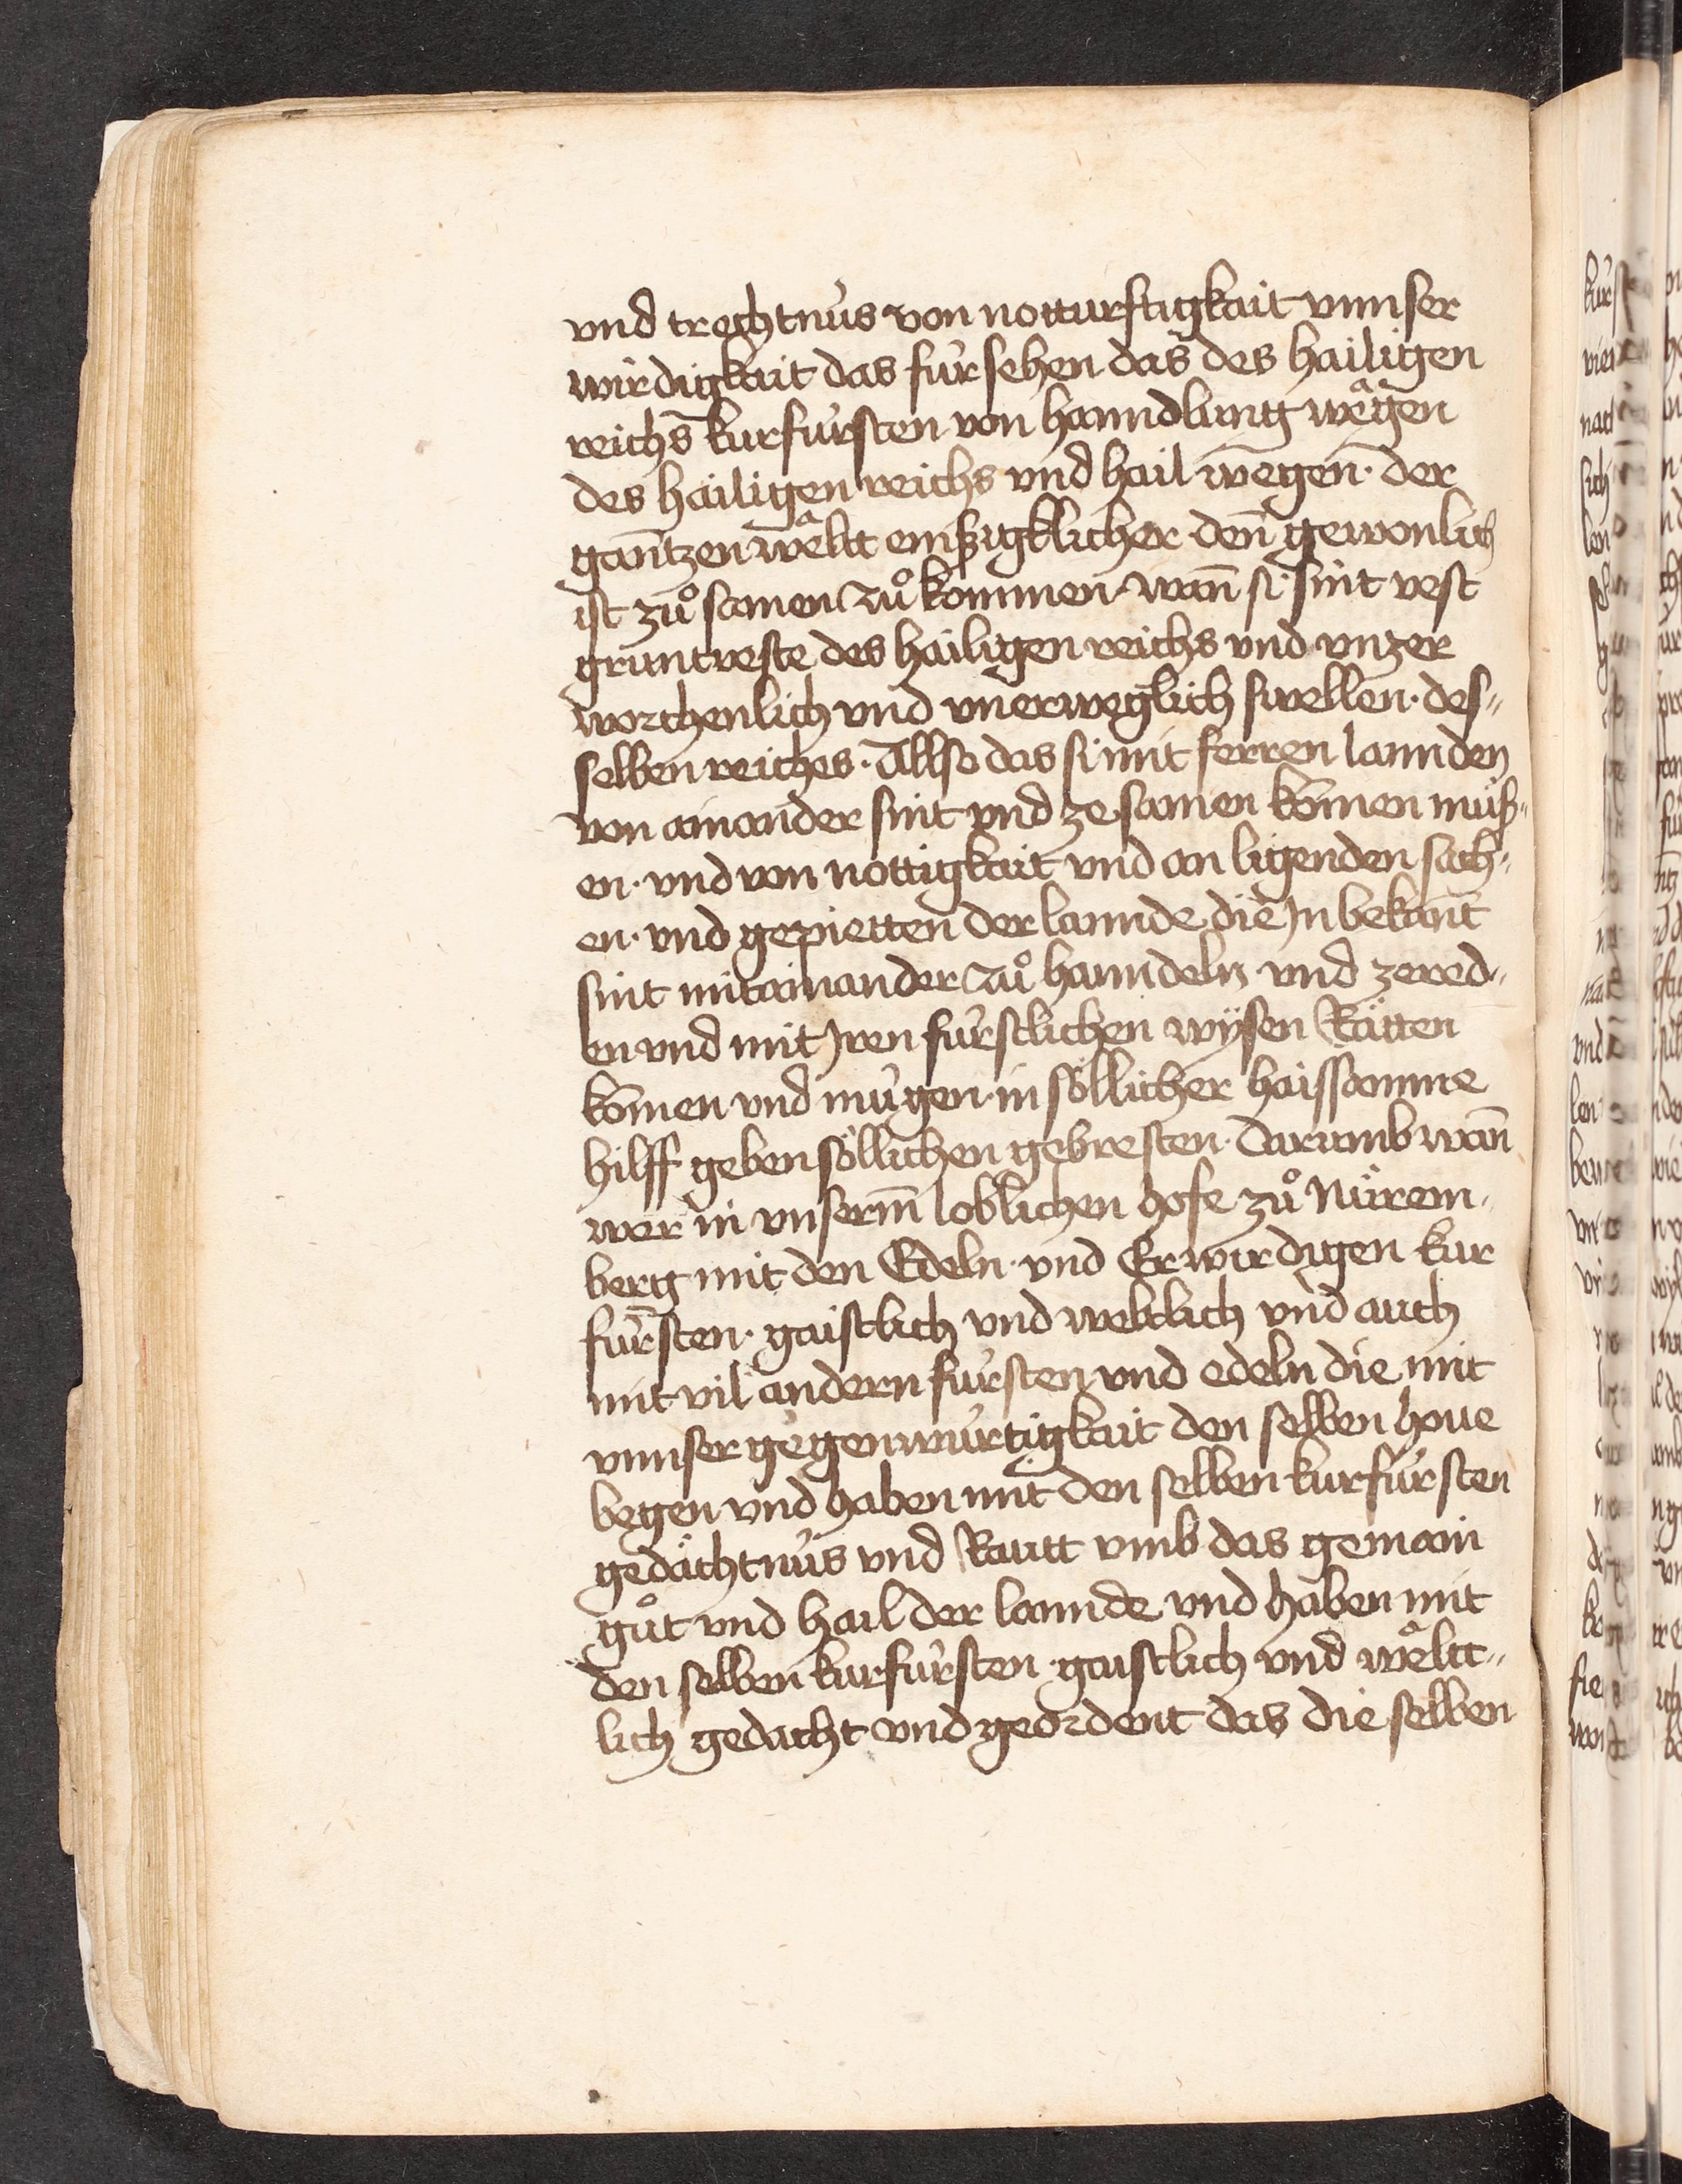 vnd trechtnùs von notturftigkait vnnser
wirdigkait das fùr sehen das des hailigen
reichs kurfùrsten von hanndlung wegen
des hailigen reichs vnd hail wegen · der
gantzen welt emßigklicher denn gewonlich
ist zů samen zů kommen · wann si · sint vest
gruntveste des hailigen reichs vnd vnzer
worchenlich vnd vnerweglich swellen · des„
selben reiches · Allso das si mit ferren lannden
von ainander sint vnd ze samen komen müß„
en · vnd von nottigkait vnd an ligenden sach„
en · vnd gepietten der lannde die Jn bekant
sint mitainander zů hanndeln vnd zered„
en vnd mit Jren fùrstlichen wÿsen Rätten
komen vnd mùgen · in söllicher haissamme
hilff geben söllichen gebresten · Darumb wann
wer in vnserm loblichen hofe zů Nùrem„
berg mit den Edeln · vnd Erwirdigen kur
fùrsten · gaistlich vnd weltlich vnd auch
mit vil andern fùrsten vnd edeln die mit
vnnser gegenwùrtigkait den selben houe
begen vnd haben mit den selben kurfùrsten
gedächtnùs vnd Rautt vmb das gemain
gůt vnd hail der lannde vnd haben mit
den selben kurfùrsten · gaistlich vnd wëltt„
lich gedacht vnd geordent das die selben